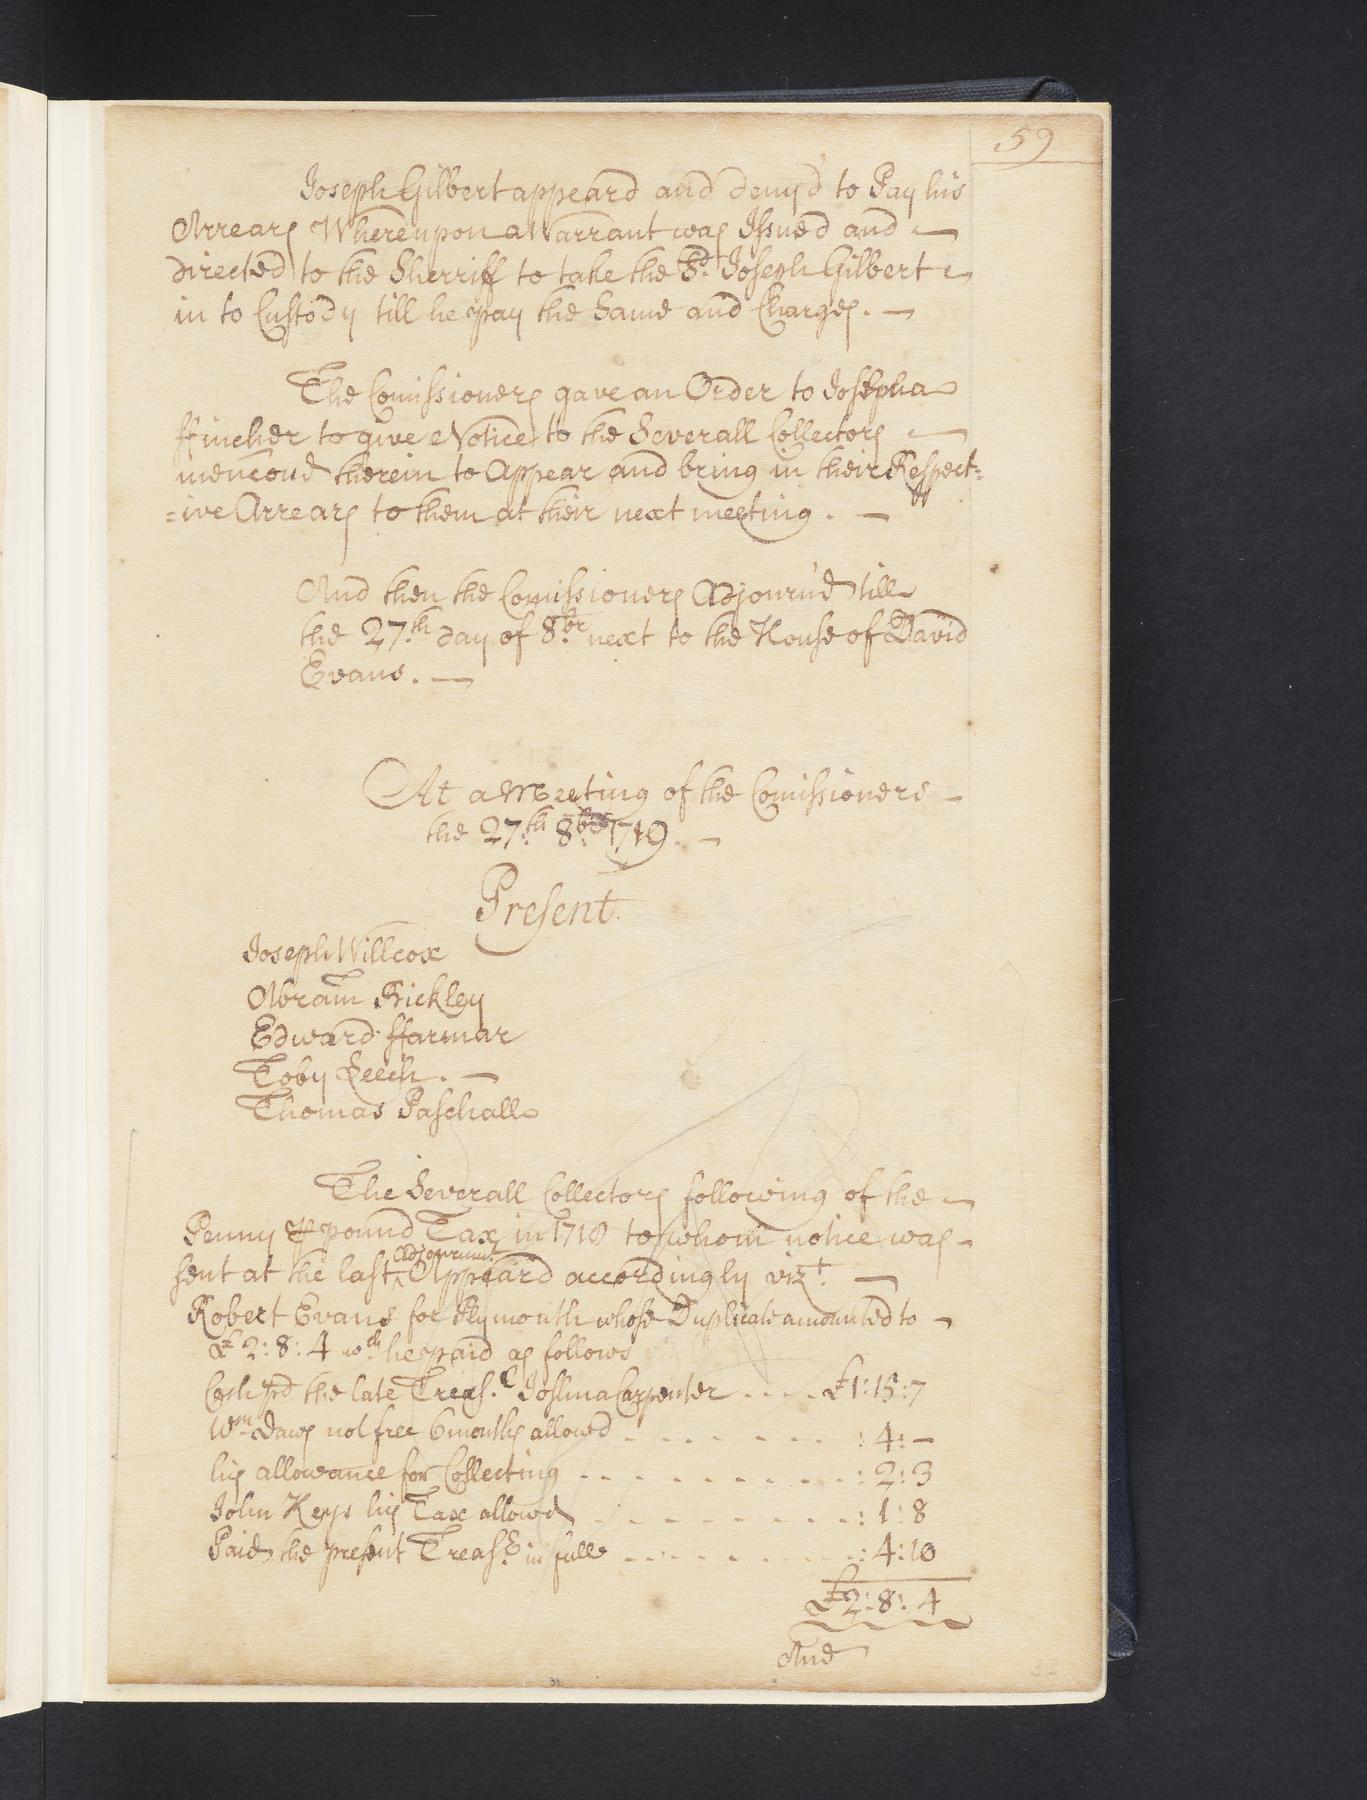 59
Joseph Gilbert appeard and deny'd to Pay his
Arrears Whereupon a Warrant was Issued and
directed to the Sherriff to take the Sd. Joseph Gilbert
in to Custody till he pay the Same and Charges.
The Comissioners gave an Order to Josepha
ffincher to give Notice to the Severall Collectors
mencond therein to Appear and bring in their Respect=
=ive Arrears to them at their next meeting.
And then the Comissioners Adjourn'd till
the 27.th day of 8.br next to the House of David
Evans.
At a Meeting of the Comissioners
the 27.th 8.br 1719.
Present.
Joseph Willcox
Abram Bickley
Edward ffarmar
Toby Leech.
Thomas Paschall
The Severall Collectors following of the
Penny ⅌ pound Tax in 1718 to whom notice was
sent at the last Adjournmt. Appeard accordingly vizt.
Robert Evans for Plymouth whose Duplicate amounted to
£2:8:4 wch. he paid as follows
Cash pd the late Treas.r Joshua Carpenter .... £1:15:7
Wm. Daws not free 6 months allowed . . . . . . : 4:—
his allowance for Collecting . . . . . . . . : 2:3
John Keys his Tax allowd . . . . . . . . : 1:8
Paid the present Treasr. in full . . . . . . : 4:10
£2:8:4
And
31